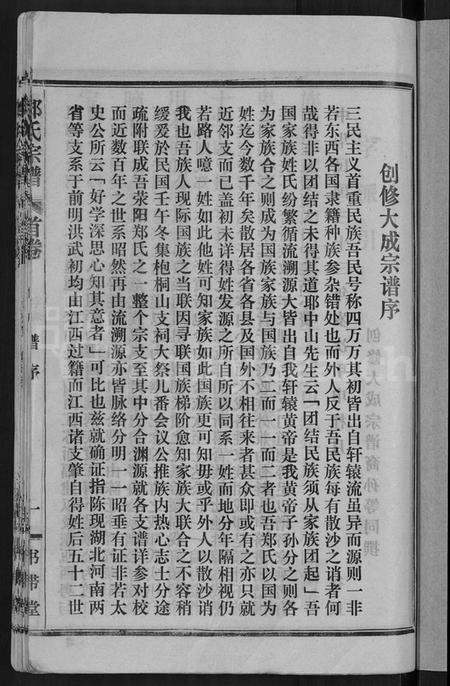 创修大成宗谱序
三民主义首重民族吾民号称四万万其初皆出自轩辕流虽异而源则一非
若东西各国隶籍种族参杂错处也而外人反于吾民族每有散沙之诮者何
哉得非以团结之未得其道耶中山先生云「团结民族须从家族团起」吾
国家族姓氏纷繁循流溯源大皆出自我轩辕黄帝是我黄帝子孙分之则各
为家族合之则成为国族家族与国族乃二而一一而二者也吾郑氏以国为
姓迄今数千年矣散居各省各县及国外不相往来者甚众即或有之亦只就
近邻支而已盖初未详得姓发源之所自所以同系一姓而地分年隔相视仍
若路人噫一姓如此他姓可知家族如此国族更可知毋或乎外人以散沙诮
我也吾族人现际国族之当联因寻联国族梯阶愈知家族大联合之不容稍
缓爰於民国壬午冬集枹桐山支祠大祭几番会议公推族内热心志士分途
疏附联成吾荥阳郑氏之一整个宗支至其中分合渊源就各支谱详参对校
而近数百年之世系昭然再由流溯源亦皆脉络分明一一昭垂有证非若太
史公所云「好学深思心知其意者」可比也兹就确证指陈现湖北河南两
省等支系于前明洪武初均由江西过籍而江西诸支肇自得姓后五十二世
郑氏宗谱
首卷
谱序
一
书带堂